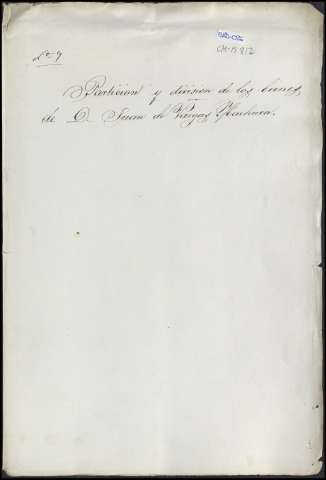 nº 9
CM-B 9/2
Particion y division de los bienes
de D. Juan de Vargas Machuca.